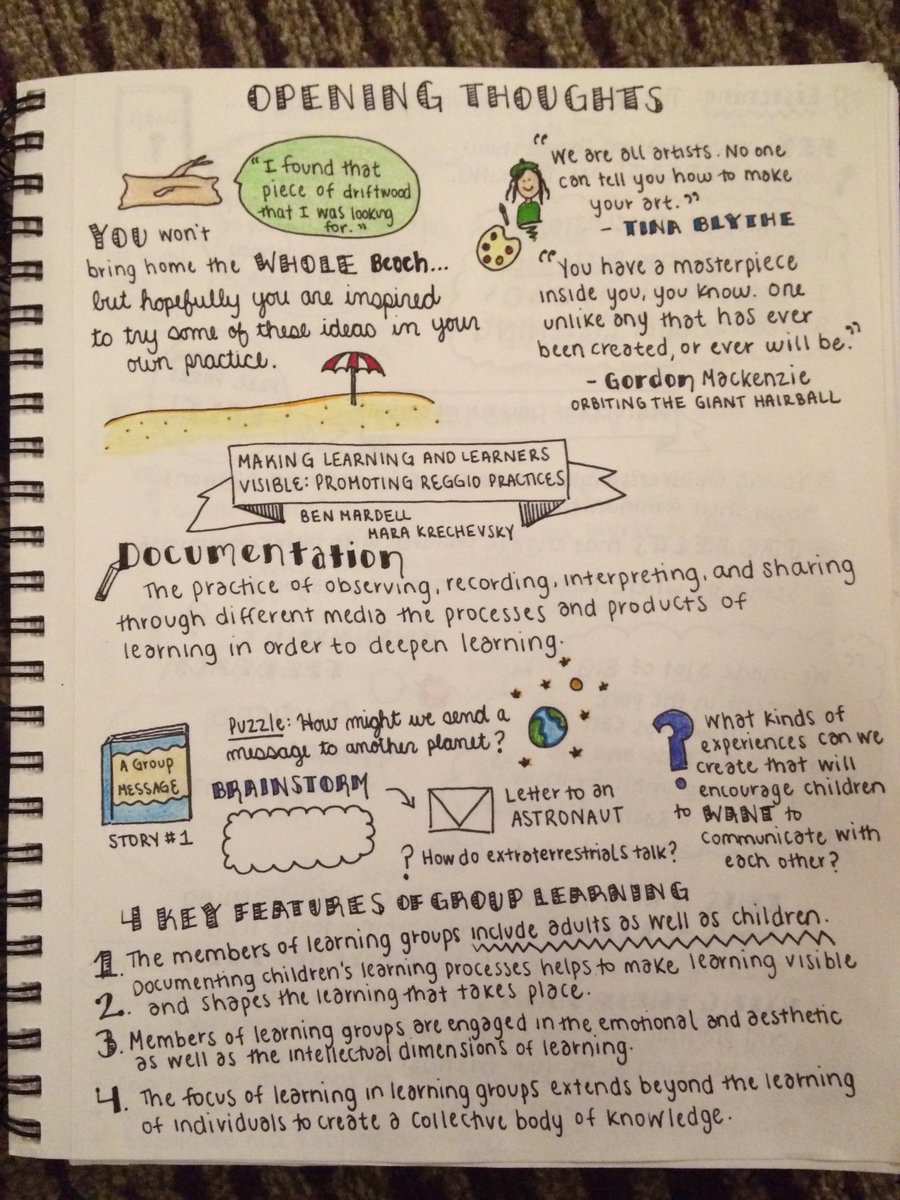 OPENING THOUGHTS
"I found that
piece of driftwood
that I was looking
for."
YOU won't
bring home the WHOLE Beach...
but hopefully you are inspired
to try some of these ideas in your
own practice.
"We are all artists. No one
can tell you how to make
your art."
- TINA BLYTHE
"You have a masterpiece
inside you, you know. One
unlike any that has ever
been created, or ever will be."
- Gordon Mackenzie
ORBITING THE GIANT HAIRBALL
MAKING LEARNING AND LEARNERS
VISIBLE: PROMOTING REGGIO PRACTICES
BEN MARDELL
MARA KRECHEVSKY
Documentation
The practice of observing, recording, interpreting, and sharing
through different media the processes and products of
learning in order to deepen learning.
A Group
MESSAGE
STORY #1
Puzzle: How might we send a
message to another planet?
BRAINSTORM
Letter to an
ASTRONAUT
? How do extraterrestrials talk?
? What kinds of
experiences can we
create that will
encourage children
to WANT to
communicate with
each other?
4 KEY FEATURES OF GROUP LEARNING
1. The members of learning groups include adults as well as children.
2. Documenting children's learning processes helps to make learning visible
and shapes the learning that takes place.
3. Members of learning groups are engaged in the emotional and aesthetic
as well as the intellectual dimensions of learning.
4. The focus of learning in learning groups extends beyond the learning
of individuals to create a collective body of knowledge.